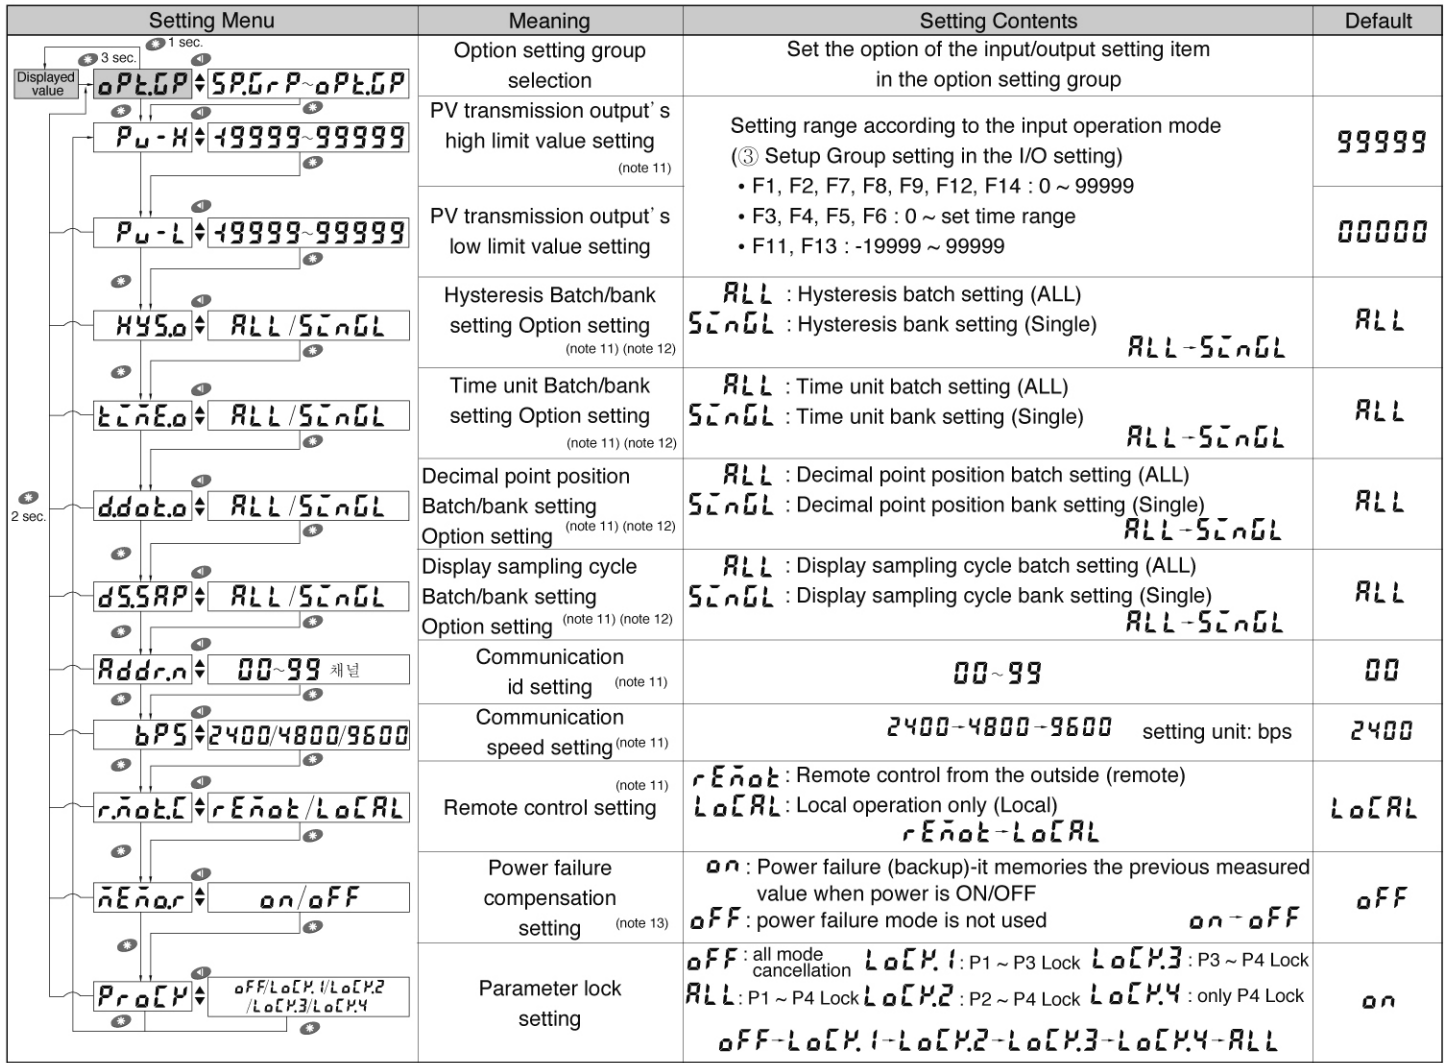 Setting Menu Meaning Setting Contents Default
1 sec.
3 sec.
Displayed value
oPt.GP SP.GrP~oPt.GP
Option setting group selection
Set the option of the input/output setting item
in the option setting group
Pv-H -19999~99999
PV transmission output's
high limit value setting
(note 11)
Setting range according to the input operation mode
(③ Setup Group setting in the I/O setting)
• F1, F2, F7, F8, F9, F12, F14 : 0 ~ 99999
• F3, F4, F5, F6 : 0 ~ set time range
• F11, F13 : -19999 ~ 99999
99999
Pv-L -19999~99999
PV transmission output's
low limit value setting
00000
HYS.o ALL/SinGL
Hysteresis Batch/bank
setting Option setting
(note 11) (note 12)
ALL : Hysteresis batch setting (ALL)
SinGL : Hysteresis bank setting (Single)
ALL→SinGL
ALL
timE.o ALL/SinGL
Time unit Batch/bank
setting Option setting
(note 11) (note 12)
ALL : Time unit batch setting (ALL)
SinGL : Time unit bank setting (Single)
ALL→SinGL
ALL
2 sec.
d.dot.o ALL/SinGL
Decimal point position
Batch/bank setting
Option setting (note 11) (note 12)
ALL : Decimal point position batch setting (ALL)
SinGL : Decimal point position bank setting (Single)
ALL→SinGL
ALL
dS.SAP ALL/SinGL
Display sampling cycle
Batch/bank setting
Option setting (note 11) (note 12)
ALL : Display sampling cycle batch setting (ALL)
SinGL : Display sampling cycle bank setting (Single)
ALL→SinGL
ALL
Addr.n 00~99 채널
Communication
id setting (note 11)
00~99
00
bPS 2400/4800/9600
Communication
speed setting (note 11)
2400→4800→9600 setting unit: bps
2400
r.mot.C rEmot/LoCAL
(note 11)
Remote control setting
rEmot : Remote control from the outside (remote)
LoCAL : Local operation only (Local)
rEmot→LoCAL
LoCAL
mEmo.r on/oFF
Power failure
compensation
setting (note 13)
on : Power failure (backup)-it memories the previous measured
value when power is ON/OFF
oFF : power failure mode is not used on→oFF
oFF
ProCK oFF/LoCK.1/LoCK.2
/LoCK.3/LoCK.4
Parameter lock
setting
oFF : all mode cancellation LoCK.1 : P1 ~ P3 Lock LoCK.3 : P3 ~ P4 Lock
ALL : P1 ~ P4 Lock LoCK.2 : P2 ~ P4 Lock LoCK.4 : only P4 Lock
oFF→LoCK.1→LoCK.2→LoCK.3→LoCK.4→ALL
on